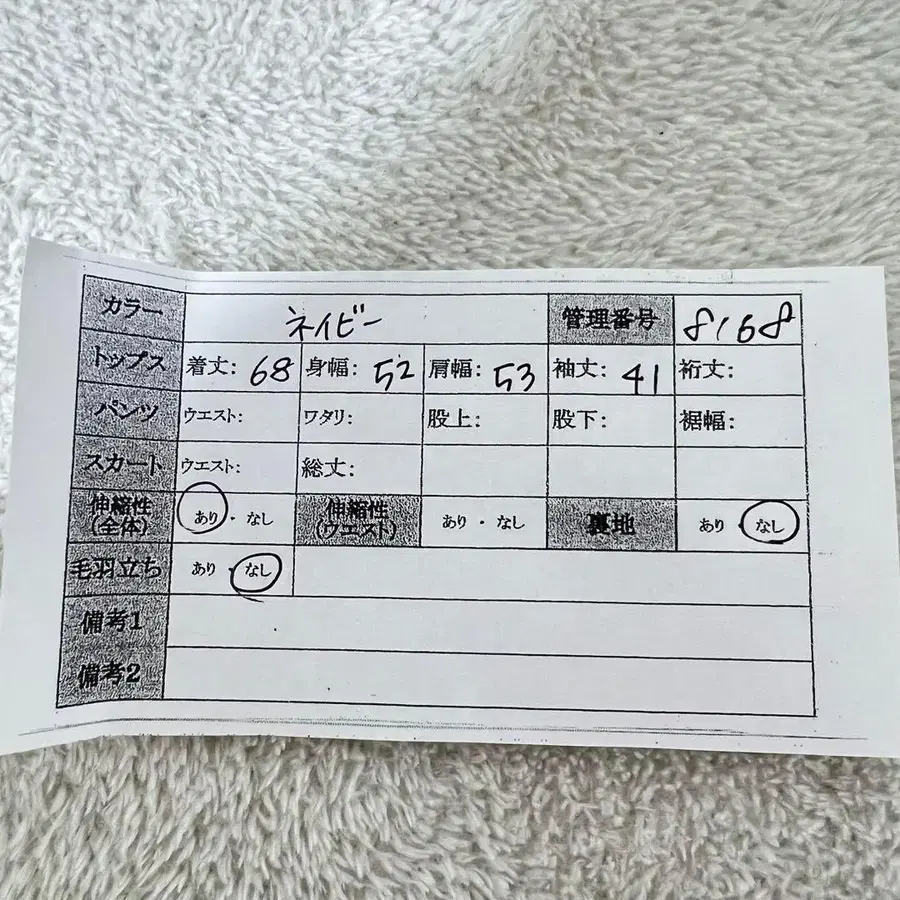 カラー ネイビー 管理番号 8168
トップス 着丈: 68 身幅: 52 肩幅: 53 袖丈: 41 裄丈:
パンツ ウエスト: ワタリ: 股上: 股下: 裾幅:
スカート ウエスト: 総丈:
伸縮性 (全体) あり・なし 伸縮性 (ウエスト) あり・なし 裏地 あり・なし
毛羽立ち あり・なし
備考1
備考2